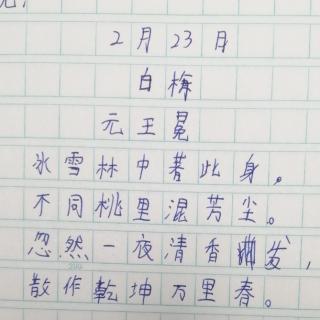 2月23日
白梅
元王冕
冰雪林中著此身。
不同桃里混芳尘。
忽然一夜清香发,
散作乾坤万里春。